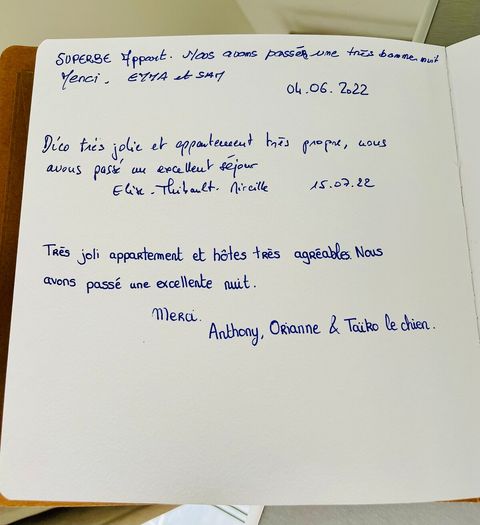 SUPERBE Appart. Nous avons passés une très bonne nuit
Merci. EMMA et SAM
04.06.2022
Déco très jolie et appartement très propre, nous
avons passé un excellent séjour
Elise - Thibault - Mireille 15.07.22
Très joli appartement et hôtes très agréables. Nous
avons passé une excellente nuit.
Merci.
Anthony, Orianne & Taïko le chien.